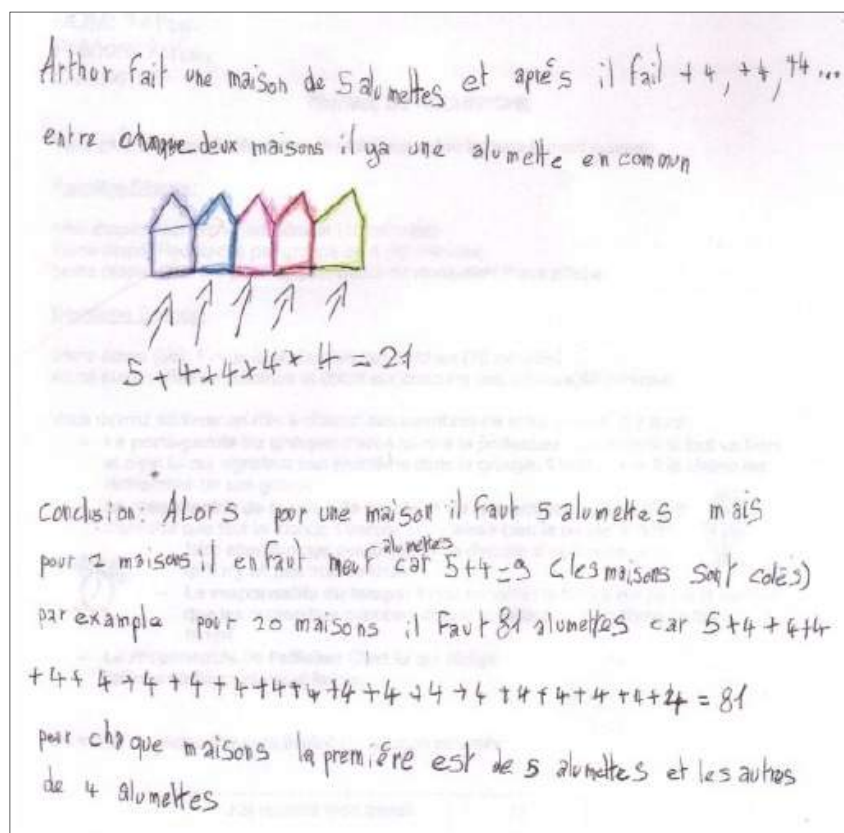 Arthur fait une maison de 5 alumettes et aprés il fait +4, +4, +4...
entre chaque deux maisons il ya une alumette en commun
5+4+4+4+4=21
conclusion: Alors pour une maison il faut 5 alumettes mais
pour 2 maisons il en faut neuf alumettes car 5+4=9 (les maisons sont colés)
par example pour 20 maisons il faut 81 alumettes car 5+4+4+4
+4+4+4+4+4+4+4+4+4+4+4+4+4+4+4+4=81
pour chaque maisons la première est de 5 alumettes et les autres
de 4 alumettes